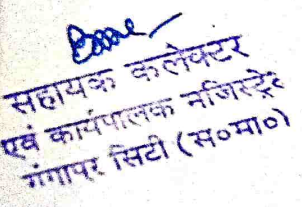 सहायक कलेक्टर
एवं कार्यपालक मजिस्ट्रेट
गंगापुर सिटी (स०मा०)